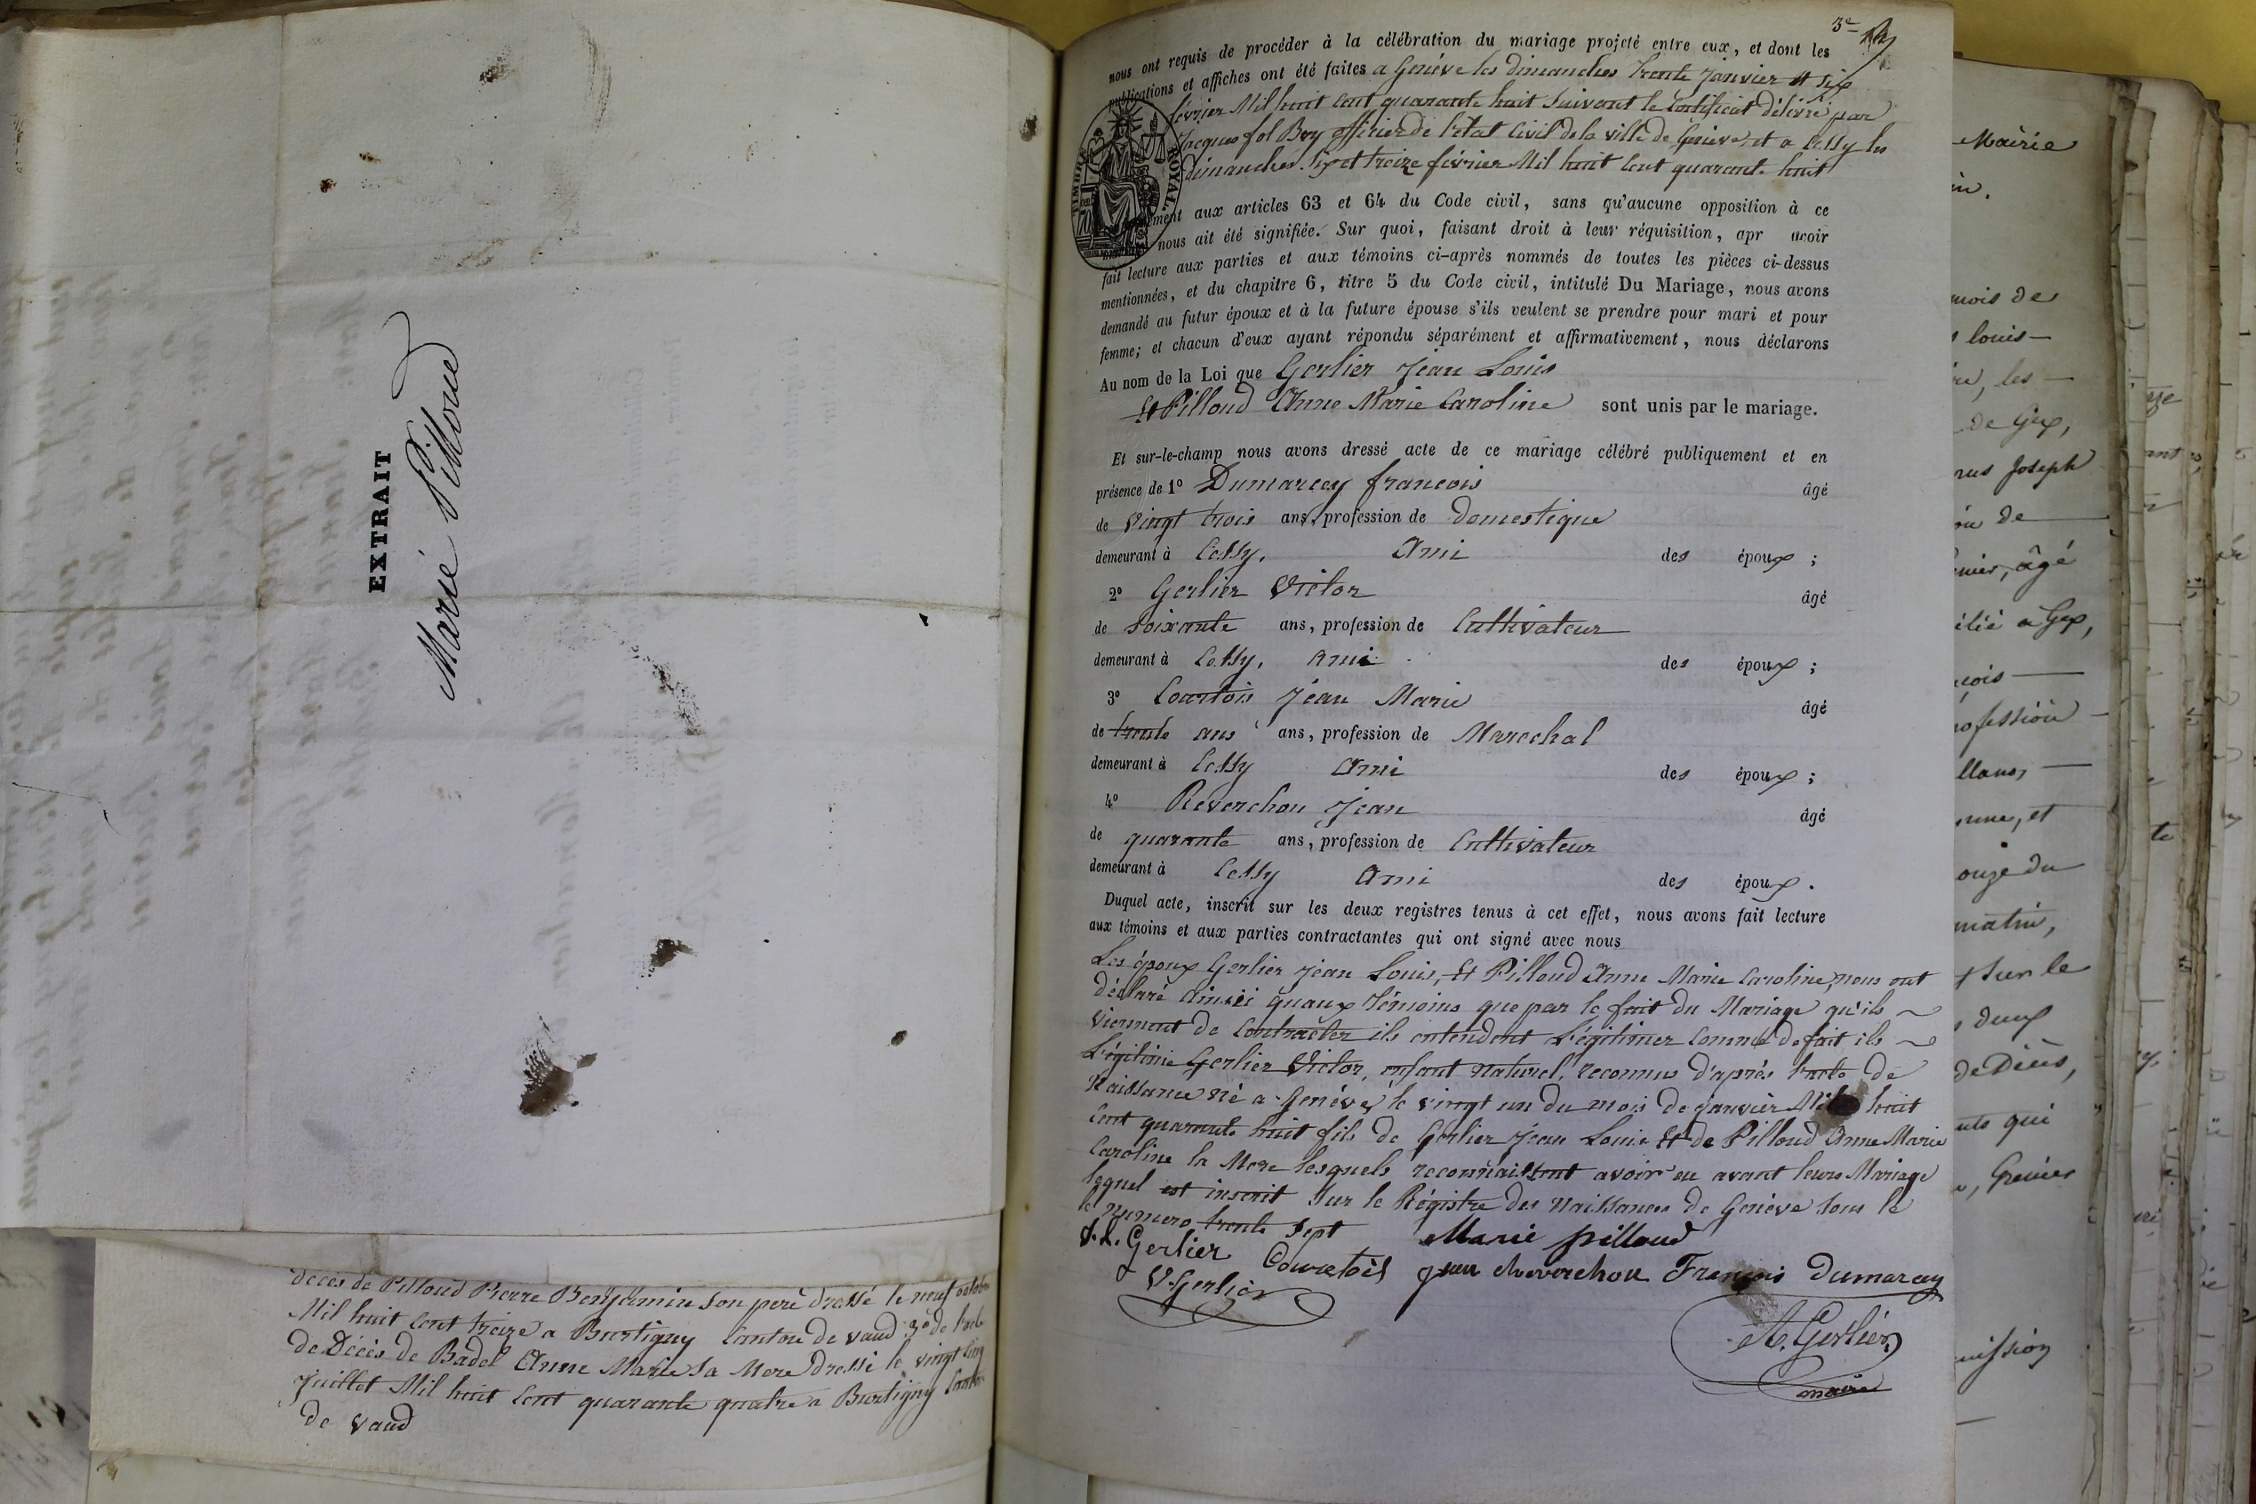 EXTRAIT
Marie Pilloud
décès de Pilloud Pierre Benjamin son père dressé le neuf octobre
Mil huit cent treize a Burtigny Canton de Vaud 3º de l'acte
de Décès de Badel Anne Marie Sa Mere dressé le vingt cinq
Juillet Mil huit cent quarante quatre a Burtigny Canton
de Vaud
3e
nous ont requis de procéder à la célébration du mariage projeté entre eux, et dont les
publications et affiches ont été faites a Genève les dimanches trente Janvier et six
février Mil huit cent quarante huit Suivant le Certificat délivré par
Jacques fol Bry officier de l'etat Civil de la ville de Genève et a Cessy les
dimanches Six et treize février Mil huit cent quarante huit
TIMBRE ROYAL.
aux articles 63 et 64 du Code civil, sans qu'aucune opposition à ce
nous ait été signifiée. Sur quoi, faisant droit à leur réquisition, apr avoir
fait lecture aux parties et aux témoins ci-après nommés de toutes les pièces ci-dessus
mentionnées, et du chapitre 6, titre 5 du Code civil, intitulé Du Mariage, nous avons
demandé au futur époux et à la future épouse s'ils veulent se prendre pour mari et pour
femme; et chacun d'eux ayant répondu séparément et affirmativement, nous déclarons
Au nom de la Loi que Gerlier Jean Louis
Et Pilloud Anne Marie Caroline sont unis par le mariage.
Et sur-le-champ nous avons dressé acte de ce mariage célébré publiquement et en
présence de 1º Dumarcey francois âgé
de vingt trois ans, profession de domestique
demeurant à Cessy, Ami des époux ;
2º Gerlier Victor âgé
de Soixante ans, profession de Cultivateur
demeurant à Cessy, ami des époux ;
3º Courtois Jean Marie âgé
de trente ans ans, profession de Marechal
demeurant à Cessy Ami des époux ;
4º Reverchon Jean âgé
de quarante ans, profession de Cultivateur
demeurant à Cessy Ami des époux .
Duquel acte, inscrit sur les deux registres tenus à cet effet, nous avons fait lecture
aux témoins et aux parties contractantes qui ont signé avec nous
Les époux Gerlier Jean Louis, Et Pilloud Anne Marie Caroline, nous ont
déclaré Ainsi quaux témoins que par le fait du Mariage qu'ils
viennent de Contracter ils entendent Légitimer Comme de fait ils
Légitime Gerlier Victor, enfant naturel, reconnu d'après l'acte de
Naissance né a Genève le vingt un du mois de janvier Mil huit
Cent quarante huit fils de Gerlier Jean Louis Et de Pilloud Anne Marie
Caroline la Mere lesquels reconnaissent avoir eu avant leurs Mariage
lequel est inscrit Sur le Régistre des Naissances de Genève Sous le
le numero trente Sept
Marie pilloud
J. L. Gerlier Courtois Jean Reverchon François Dumarcey
V. Gerlier
A. Gerlier
maire
Mairie
mois de
louis
les
de Gex,
Joseph
de
âgé
à Gex,
profession
et
onze du
matin,
sur le
deux
de Dieu,
qui
Grenier